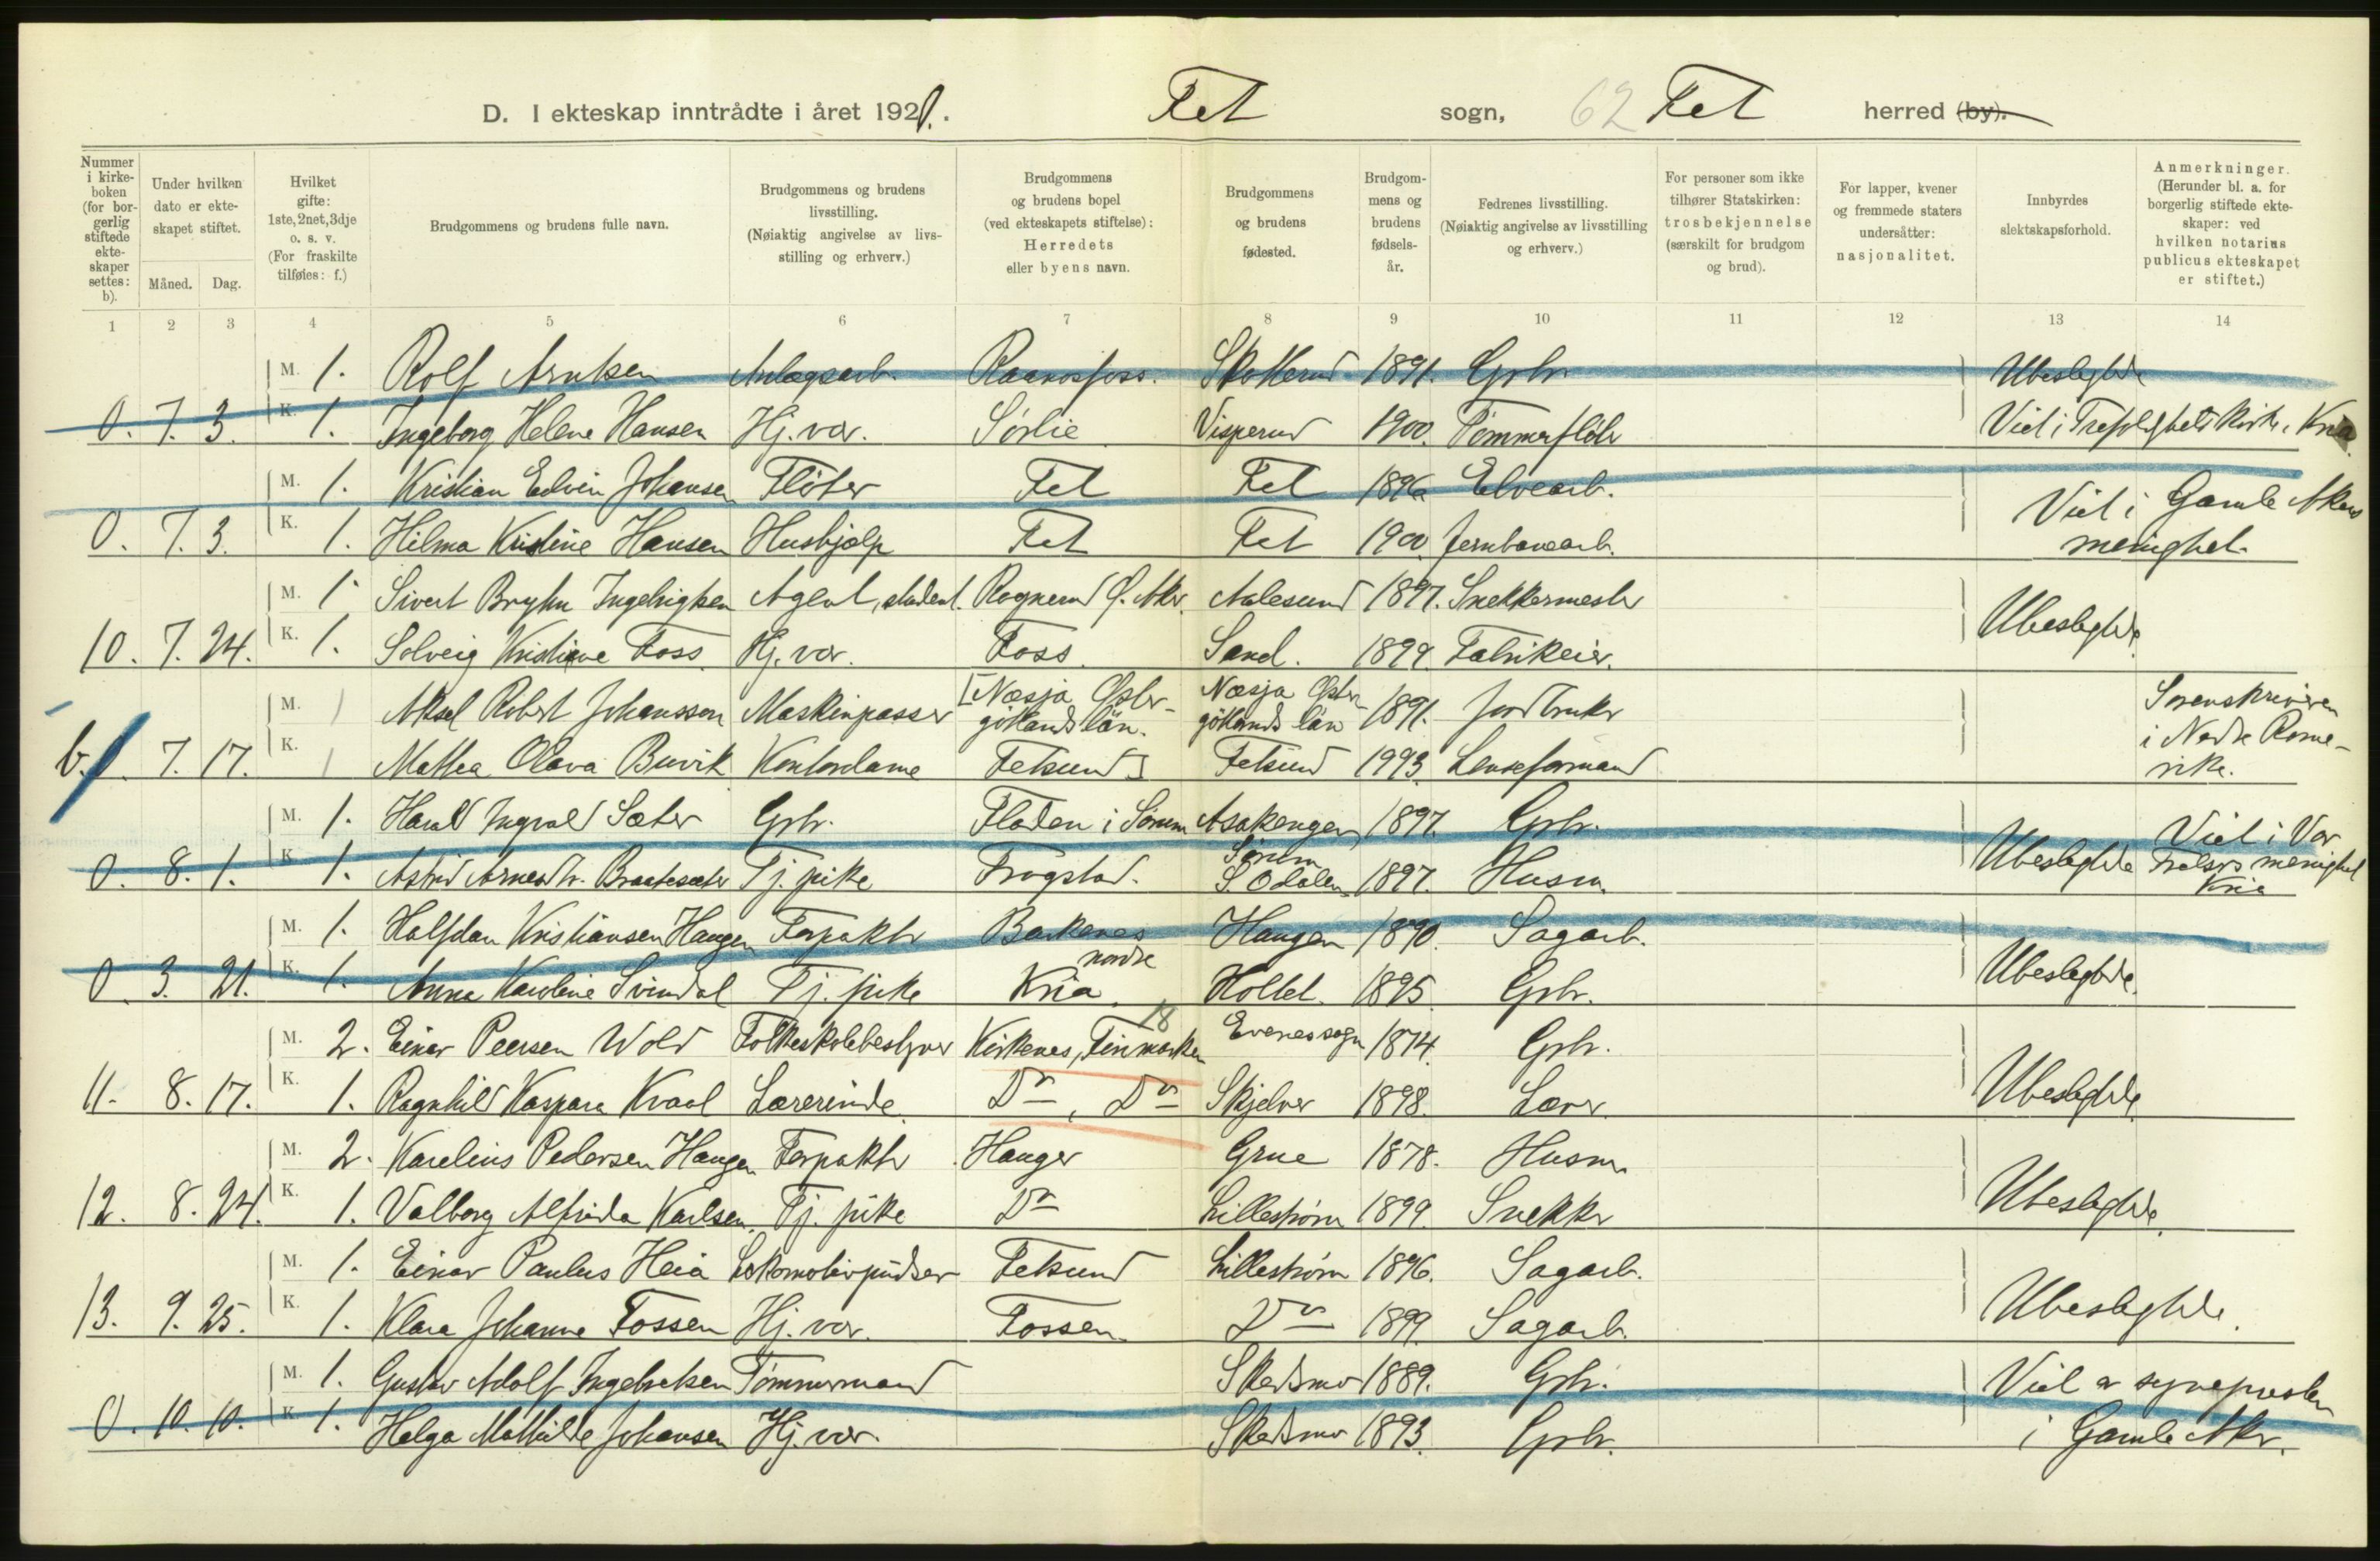 D. I ekteskap inntrådte i året 1920. Fet sogn, 62 Fet herred (by).
Nummer i kirkeboken (for borgerlig stiftede ekteskaper settes: b).
Under hvilken dato er ekteskapet stiftet.
Måned. Dag.
Hvilket gifte: 1ste, 2net, 3dje o. s. v. (For fraskilte tilføies: f.)
Brudgommens og brudens fulle navn.
Brudgommens og brudens livsstilling. (Nøiaktig angivelse av livsstilling og erhverv.)
Brudgommens og brudens bopel (ved ekteskapets stiftelse): Herredets eller byens navn.
Brudgommens og brudens fødested.
Brudgommens og brudens fødselsår.
Fedrenes livsstilling. (Nøiaktig angivelse av livsstilling og erhverv.)
For personer som ikke tilhører Statskirken: trosbekjennelse (særskilt for brudgom og brud).
For lapper, kvener og fremmede staters undersåtter: nasjonalitet.
Innbyrdes slektskapsforhold.
Anmerkninger. (Herunder bl. a. for borgerlig stiftede ekteskaper: ved hvilken notarius publicus ekteskapet er stiftet.)
1 2 3 4 5 6 7 8 9 10 11 12 13 14
M. 1. Rolf Arntsen Anlægsarb. Raanosfoss. Skotterud 1891. Grbr. Ubeslegtede
0. 7. 3. K. 1. Ingeborg Helene Hansen Hj. vær. Sørlie Visperud 1900. Tømmerfløter Viet i Trefoldighets Kirke, Kria.
M. 1. Kristian Edvin Johansen Fløter Fet Fet 1896 Elvearb. Viet i Gamle Akers
0. 7. 3. K. 1. Hilma Kristine Hansen Hushjælp Fet Fet 1900 Jernbanearb. menighet.
M. 1. Sivert Bryhn Ingebrigtsen Agent, student. Rognerud Ø. Aker. Aalesund 1897. Snekkermester
10. 7. 24. K. 1. Solveig Kristiane Foss. Hj. vær. Foss. Sand. 1899. Fabrikeier. Ubeslegtede.
M. 1 Aksel Robert Johansson Maskinpasser [Næsja Östergötlands län. Næsja Östergötlands län 1891. Jordbruker Sorenskriveren
b. 0. 7. 17. K. 1 Mathea Olava Buvik Kontordame Fetsund] Fetsund 1993. Lenseformand i Nedre Romerike.
M. 1. Harald Ingvald Sæter Grbr. Floden i Sørum Asakengen, Sørum 1897. Grbr. Viet i Vor
0. 8. 1. K. 1. Astrid Arnesdtr. Braatesæter Tj. pike Frogstad. S. Odalen 1897. Husm. Ubeslegtede Frelsers menighet Kria
M. 1. Halfdan Kristiansen Haugen Forpakter Bakenes nordre Haugen 1890. Sagarb.
0. 3. 21. K. 1. Anna Karoline Svindal Tj. pike Kria. Holtet. 1895. Grbr. Ubeslegtede.
18
M. 2. Einar Peersen Wold Folkeskolebestyrer Kirkenes, Finmarken Evenes sogn 1874. Grbr.
11. 8. 17. K. 1. Ragnhild Kaspara Kvaal Lærerinde. Do, Do Skjelver 1898. Lærer. Ubeslegtede.
M. 2. Karelius Pedersen Haugen Forpakter Hauger Grue 1878. Husm.
12. 8. 24. K. 1. Valborg Alfrida Karlsen. Tj. pike Do Lillestrøm 1899. Snekker Ubeslegtede.
M. 1. Einar Paulus Heia Lokomotivpudser Fetsund Lillestrøm 1896. Sagarb.
13. 9. 25. K. 1. Klara Johanne Fossen Hj. vær. Fossen. Do 1899. Sagarb. Ubeslegtede.
M. 1. Gustav Adolf Ingebretsen Tømmermand Skedsmo 1889. Grbr. Viet av sognepresten
0. 10. 10. K. 1. Helga Mathilde Johansen Hj. vær. Skedsmo 1893. Grbr. i Gamle Aker.